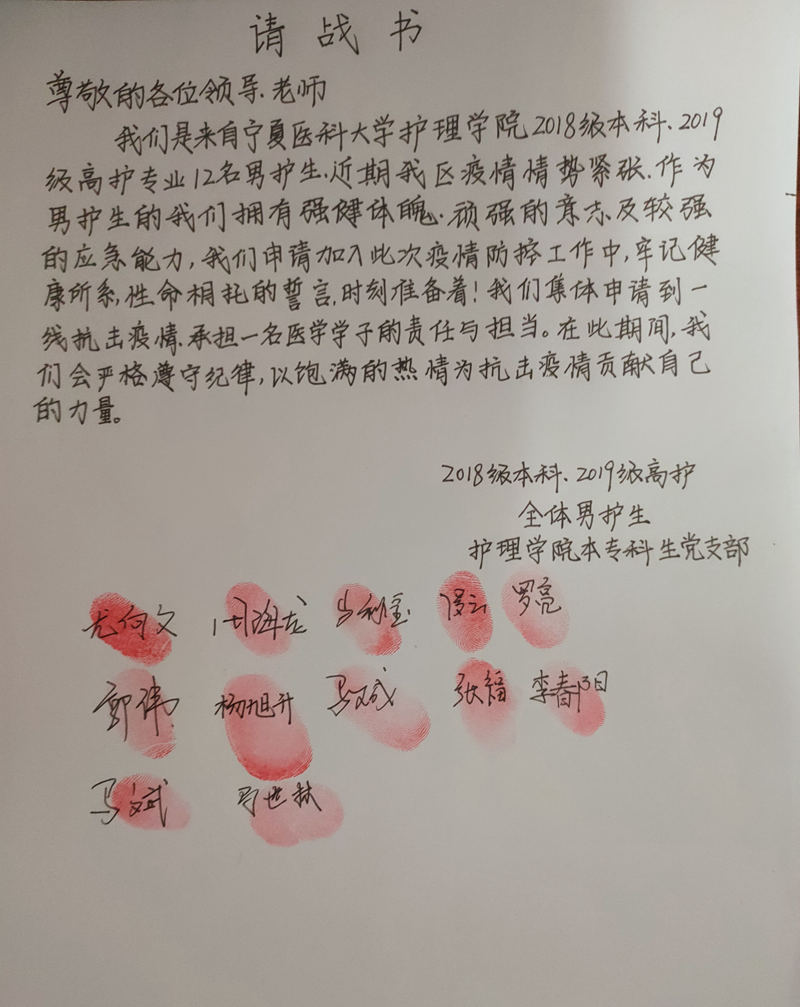 请战书
尊敬的各位领导、老师
我们是来自宁夏医科大学护理学院2018级本科、2019
级高护专业12名男护生.近期我区疫情情势紧张.作为
男护生的我们拥有强健体魄.顽强的意志及较强
的应急能力,我们申请加入此次疫情防控工作中,牢记健
康所系,性命相托的誓言,时刻准备着!我们集体申请到一
线抗击疫情.承担一名医学学子的责任与担当。在此期间,我
们会严格遵守纪律,以饱满的热情为抗击疫情贡献自己
的力量。
2018级本科、2019级高护
全体男护生
护理学院本专科生党支部
尤向文 周海龙 罗亮
郭伟 杨旭升 马斌 张福 李春阳
马文斌 马世林